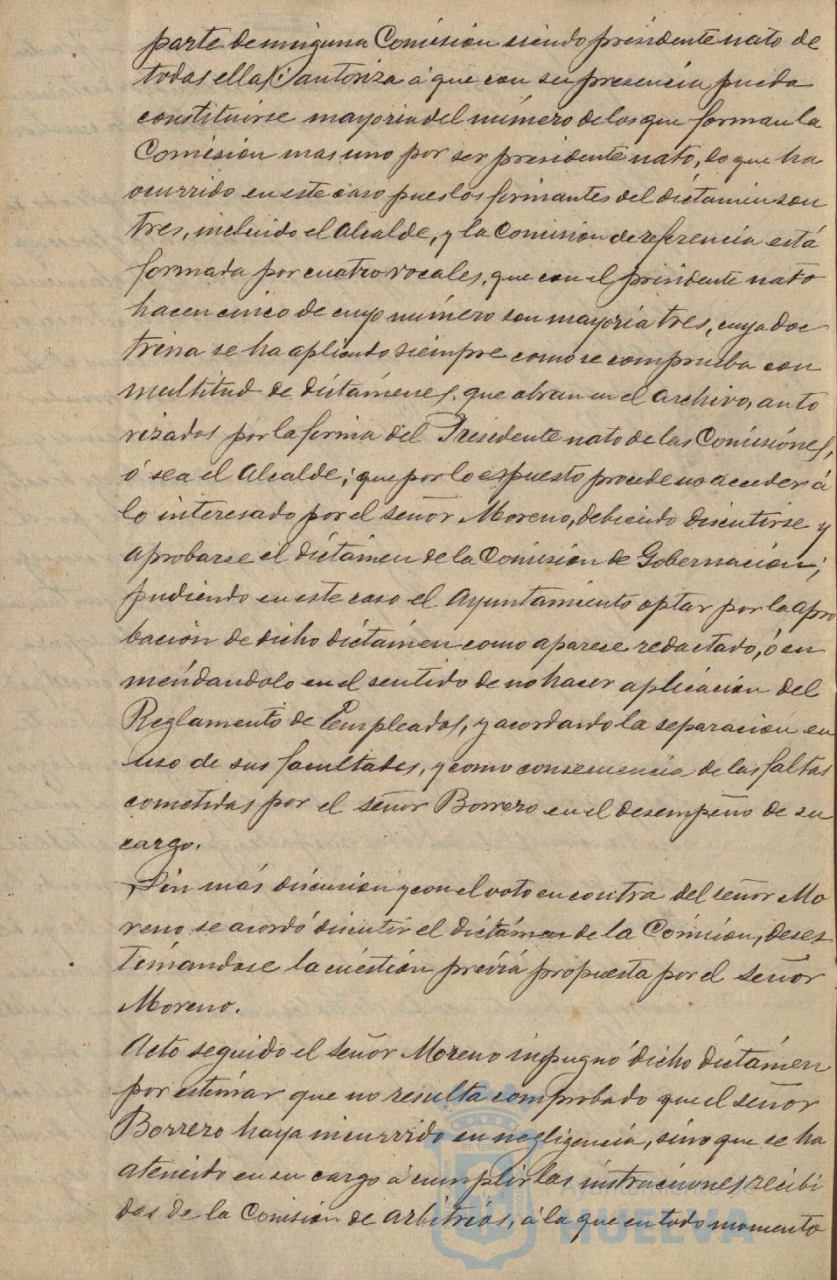 parte de ninguna Comisión siendo presidente nato de
todas ellas, autoriza á que con su presencia pueda
constituirse mayoria del número de los que forman la
Comisión mas uno por ser presidente nato, lo que ha
ocurrido en este caso pues los firmantes del dictámen son
tres, incluido el Alcalde, y la Comisión de referencia está
formada por cuatro vocales, que con el presidente nato
hacen cinco de cuyo número son mayoría tres, cuya doc
trina se ha aplicado siempre como se comprueba con
multitud de dictámenes que obran en el archivo, auto
rizados por la firma del Presidente nato de las Comisiónes,
ó sea el Alcalde; que por lo espuesto procede no acceder á
lo interesado por el señor Moreno, debiendo discutirse y
aprobarse el dictámen de la Comisión de Gobernación;
pudiendo en este caso el Ayuntamiento optar por la apro
bación de dicho dictámen como aparece redactado, ó en
mendandolo en el sentido de no hacer aplicación del
Reglamento de Empleados, y acordando la separación en
uso de sus facultades, y como consecuencia de las faltas
cometidas por el señor Borrero en el desempeño de su
cargo.
Sin más discusion y con el voto en contra del señor Mo
reno se acordó discutir el dictámen de la Comisión, deses
timándose la cuestión prévia propuesta por el señor
Moreno.
Acto seguido el señor Moreno impugnó dicho dictámen
por estimar que no resulta comprobado que el señor
Borrero haya incurrido en negligencia, sino que se ha
atenido en su cargo á cumplir las instrucciones recibi
das de la Comisión de arbitrios, á la que en todo momento
Ayuntamiento de
HUELVA